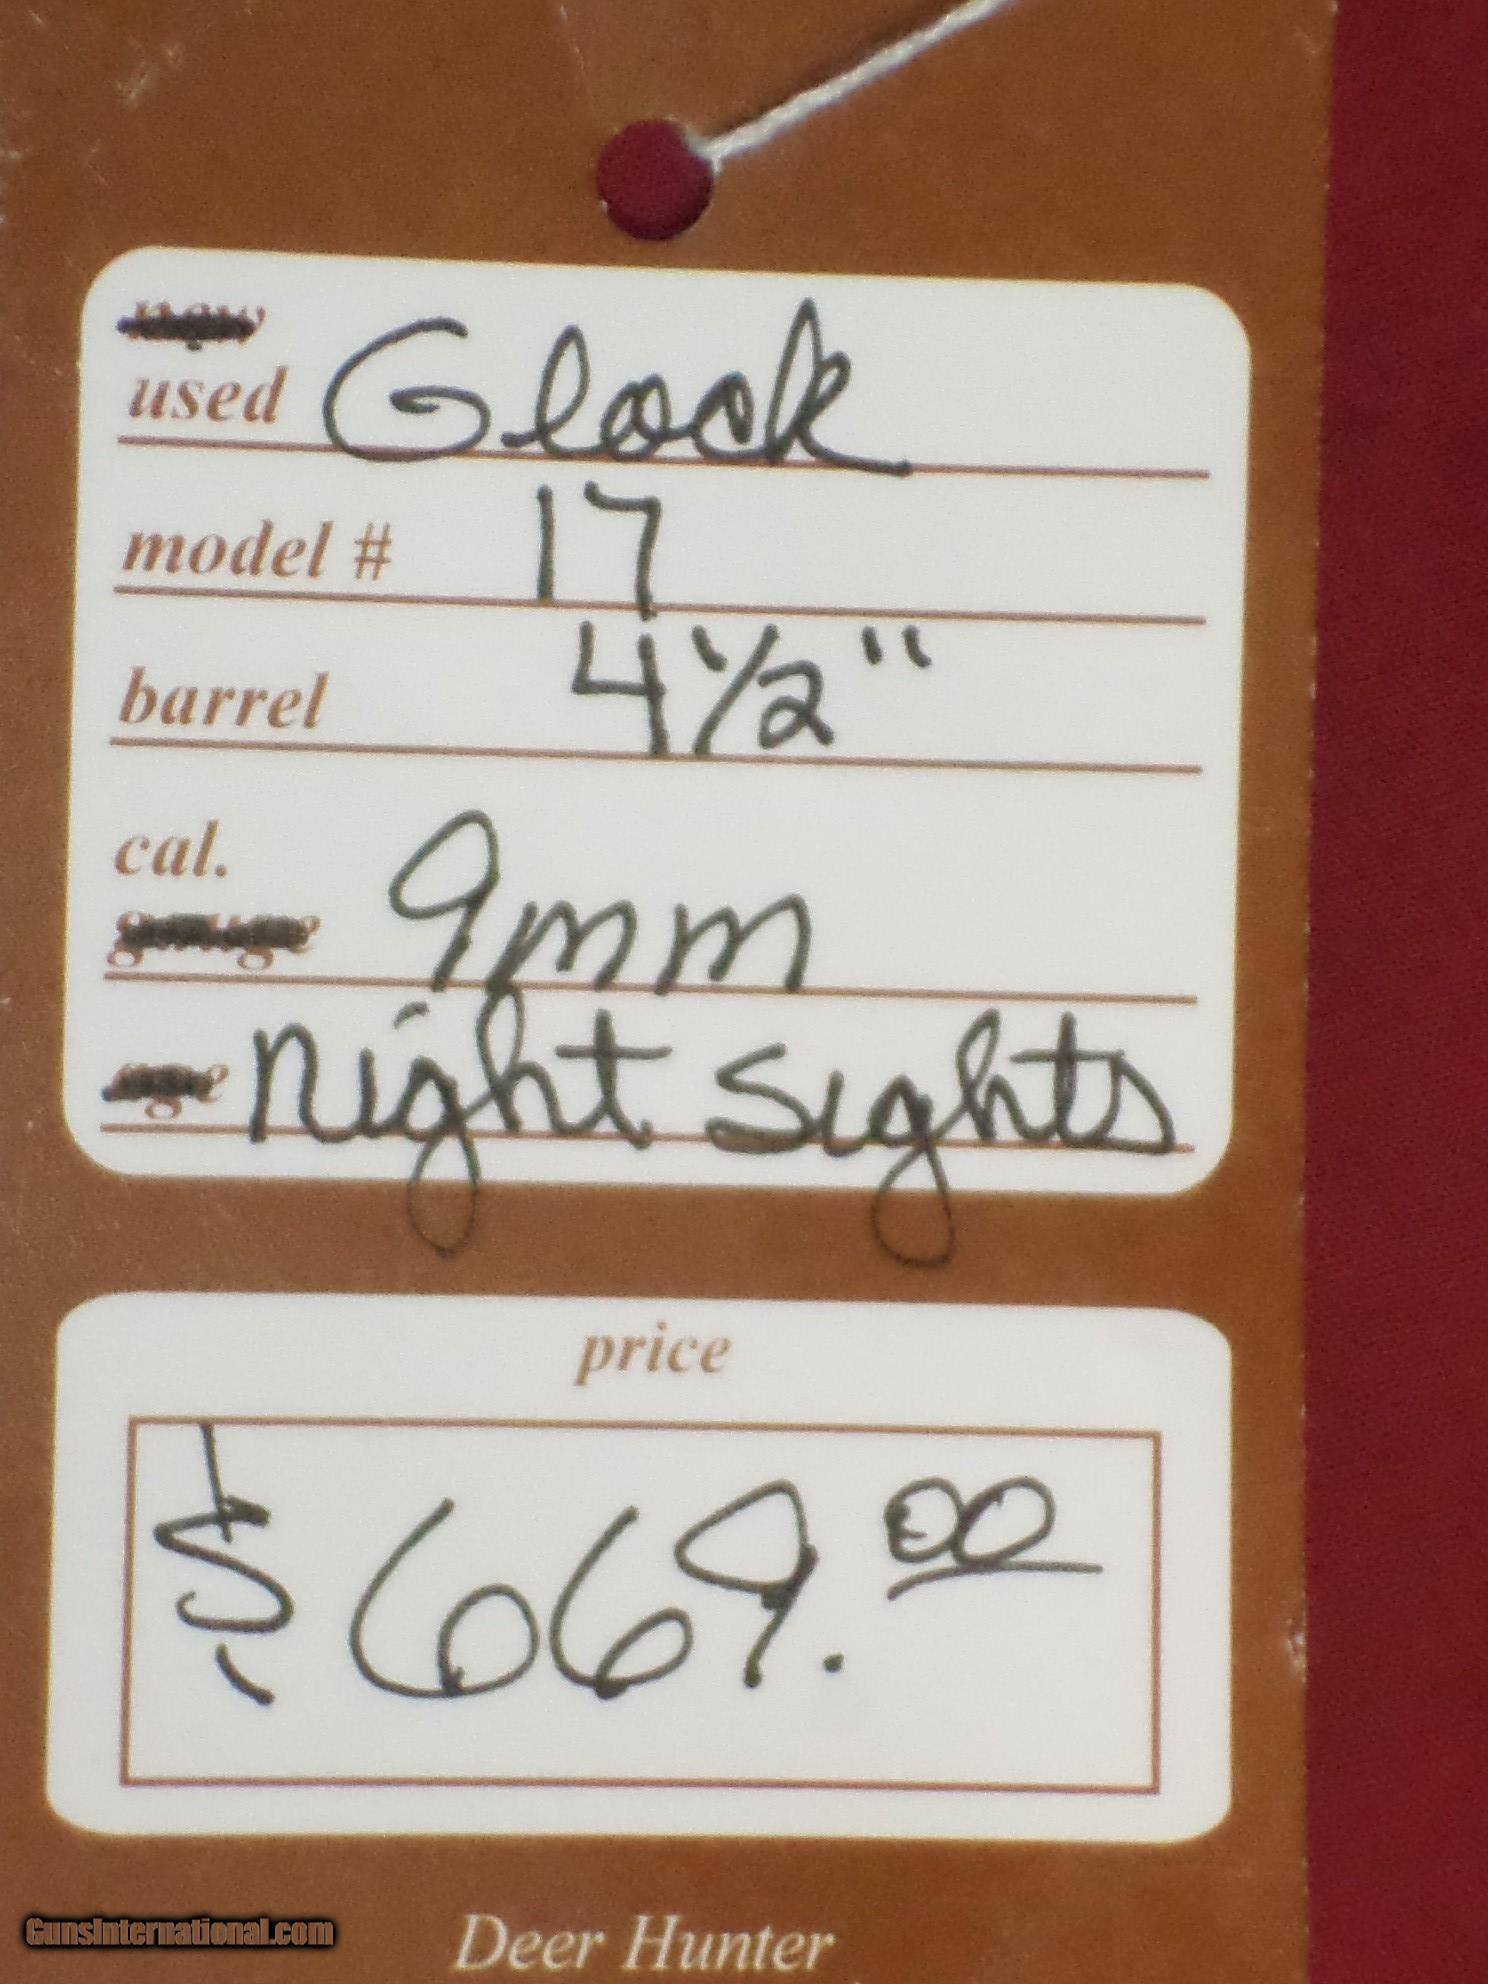 new
used Glock
model # 17
barrel 4 1/2"
cal. 9mm
gauge
age night sights
price
$669.00
Deer Hunter
GunsInternational.com